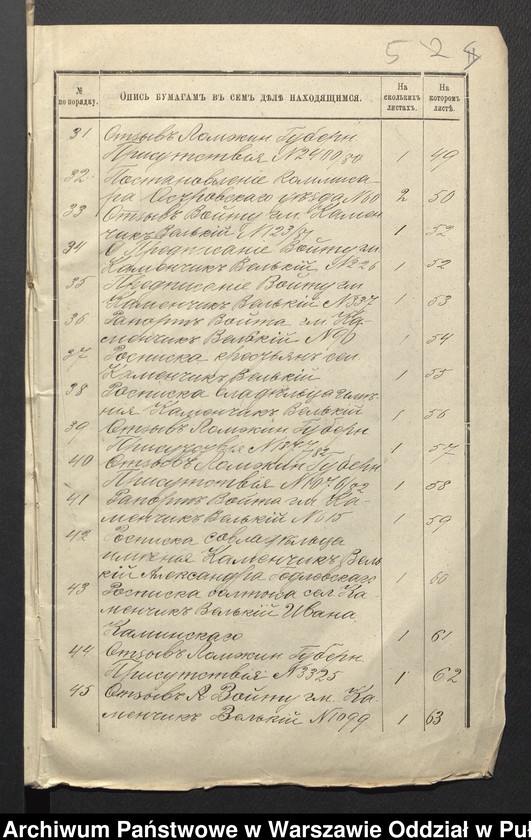 524
№ по порядку.
Опись бумагамъ въ семъ дѣлѣ находящимся.
На сколькихъ листахъ.
На которомъ листѣ.
31 Отзывъ Ломжин Губерн
Присутствія № 2400/80 1 49
32 Постановленіе Коммиса-
ра Островскаго уѣзда № 10 2 50
33 Отзывъ Войту гм. Камен
чикъ Велькій № 123/81 1 52
34 Предписаніе Войту гм
Каменчикъ Велькій № 226 1 52
35 Предписаніе Войту гм
Каменчикъ Велькій № 337 1 53
36 Рапортъ Войта гм. Ка-
менчикъ Велькій 1 54
37 Росписка крестьянъ сел
Каменчикъ Велькій 1 55
38 Росписка владѣльца имѣ
нія Каменчикъ Велькій 1 56
39 Отзывъ Ломжин Губерн
Присутствія 1 57
40 Отзывъ Ломжин Губерн
Присутствія № 1076/82 1 58
41 Рапортъ Войта гм. Ка-
менчикъ Велькій № 615 1 59
42 Росписка совладѣльца
имѣнія Каменчикъ Вель
кій Александра Годлевскаго 1 60
43 Росписка солтыса сел Ка
менчикъ Велькій Ивана
Каминскаго 1 61
44 Отзывъ Ломжин Губерн
Присутствія № 3325 1 62
45 Отзывъ Войту гм. Ка-
менчикъ Велькій № 1099 1 63
Archiwum Państwowe w Warszawie Oddział w Puł